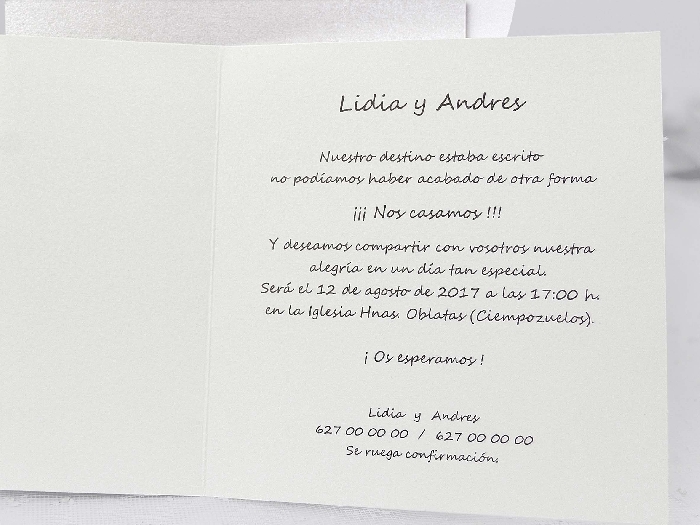 Lidia y Andres
Nuestro destino estaba escrito
no podíamos haber acabado de otra forma
¡¡¡ Nos casamos !!!
Y deseamos compartir con vosotros nuestra
alegría en un día tan especial.
Será el 12 de agosto de 2017 a las 17:00 h.
en la Iglesia Hnas. Oblatas (Ciempozuelos).
¡ Os esperamos !
Lidia y Andres
627 00 00 00 / 627 00 00 00
Se ruega confirmación.